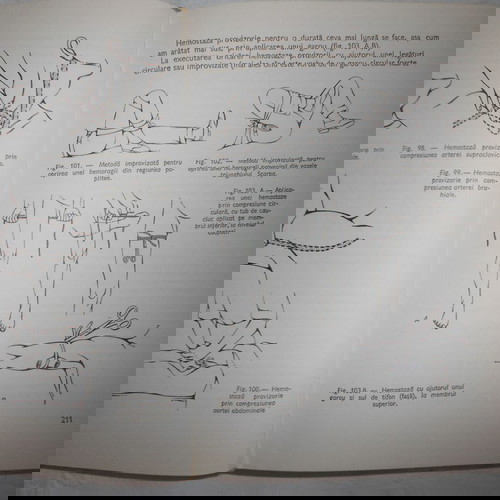 Hemostaza provizorie pentru o durată ceva mai lungă se face, așa cum
am arătat mai sus, prin aplicarea unui garou (fig. 103 A,B).
La executarea
circulare sau improvizate
prin
Fig. 101. — Metodă improvizată pentru
oprirea unei hemoragii din regiunea po-
plitee.
Fig. 102. — Metodă improvizată pentru
oprirea unei hemoragii provizorii din vasele
triunghiului Scarpa.
prin
Fig. 98. — Hemostază proviz
compresiunea arterei supraclavic
Fig. 99. — Hemostaz
provizorie prin com-
presiunea arterei bra-
hiale.
Fig. 103, A. — Aplica-
rea unei hemostaze
prin compresiune cir-
culară, cu tub de cau-
ciuc aplicat pe mem-
brul inferior, la nivelul
Fig. 100. — Hemo-
stază provizorie
prin compresiunea
aortei abdominale
Fig. 103 B. — Hemostază cu ajutorul unui
garou și sul de tifon (fașă), la membrul
superior.
211